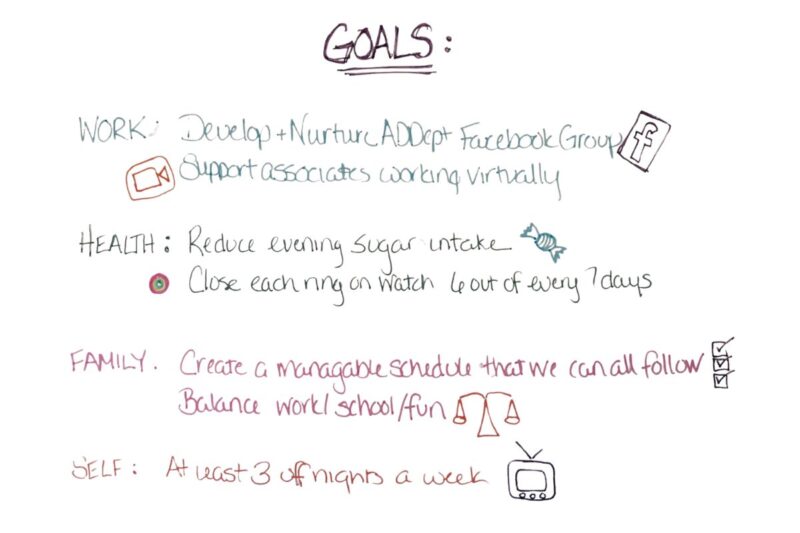 GOALS:
WORK: Develop + Nurture ADDept Facebook Group
Support associates working virtually
HEALTH: Reduce evening sugar intake
Close each ring on watch 6 out of every 7 days
FAMILY. Create a managable schedule that we can all follow
Balance work/school/fun
SELF: At least 3 off nights a week